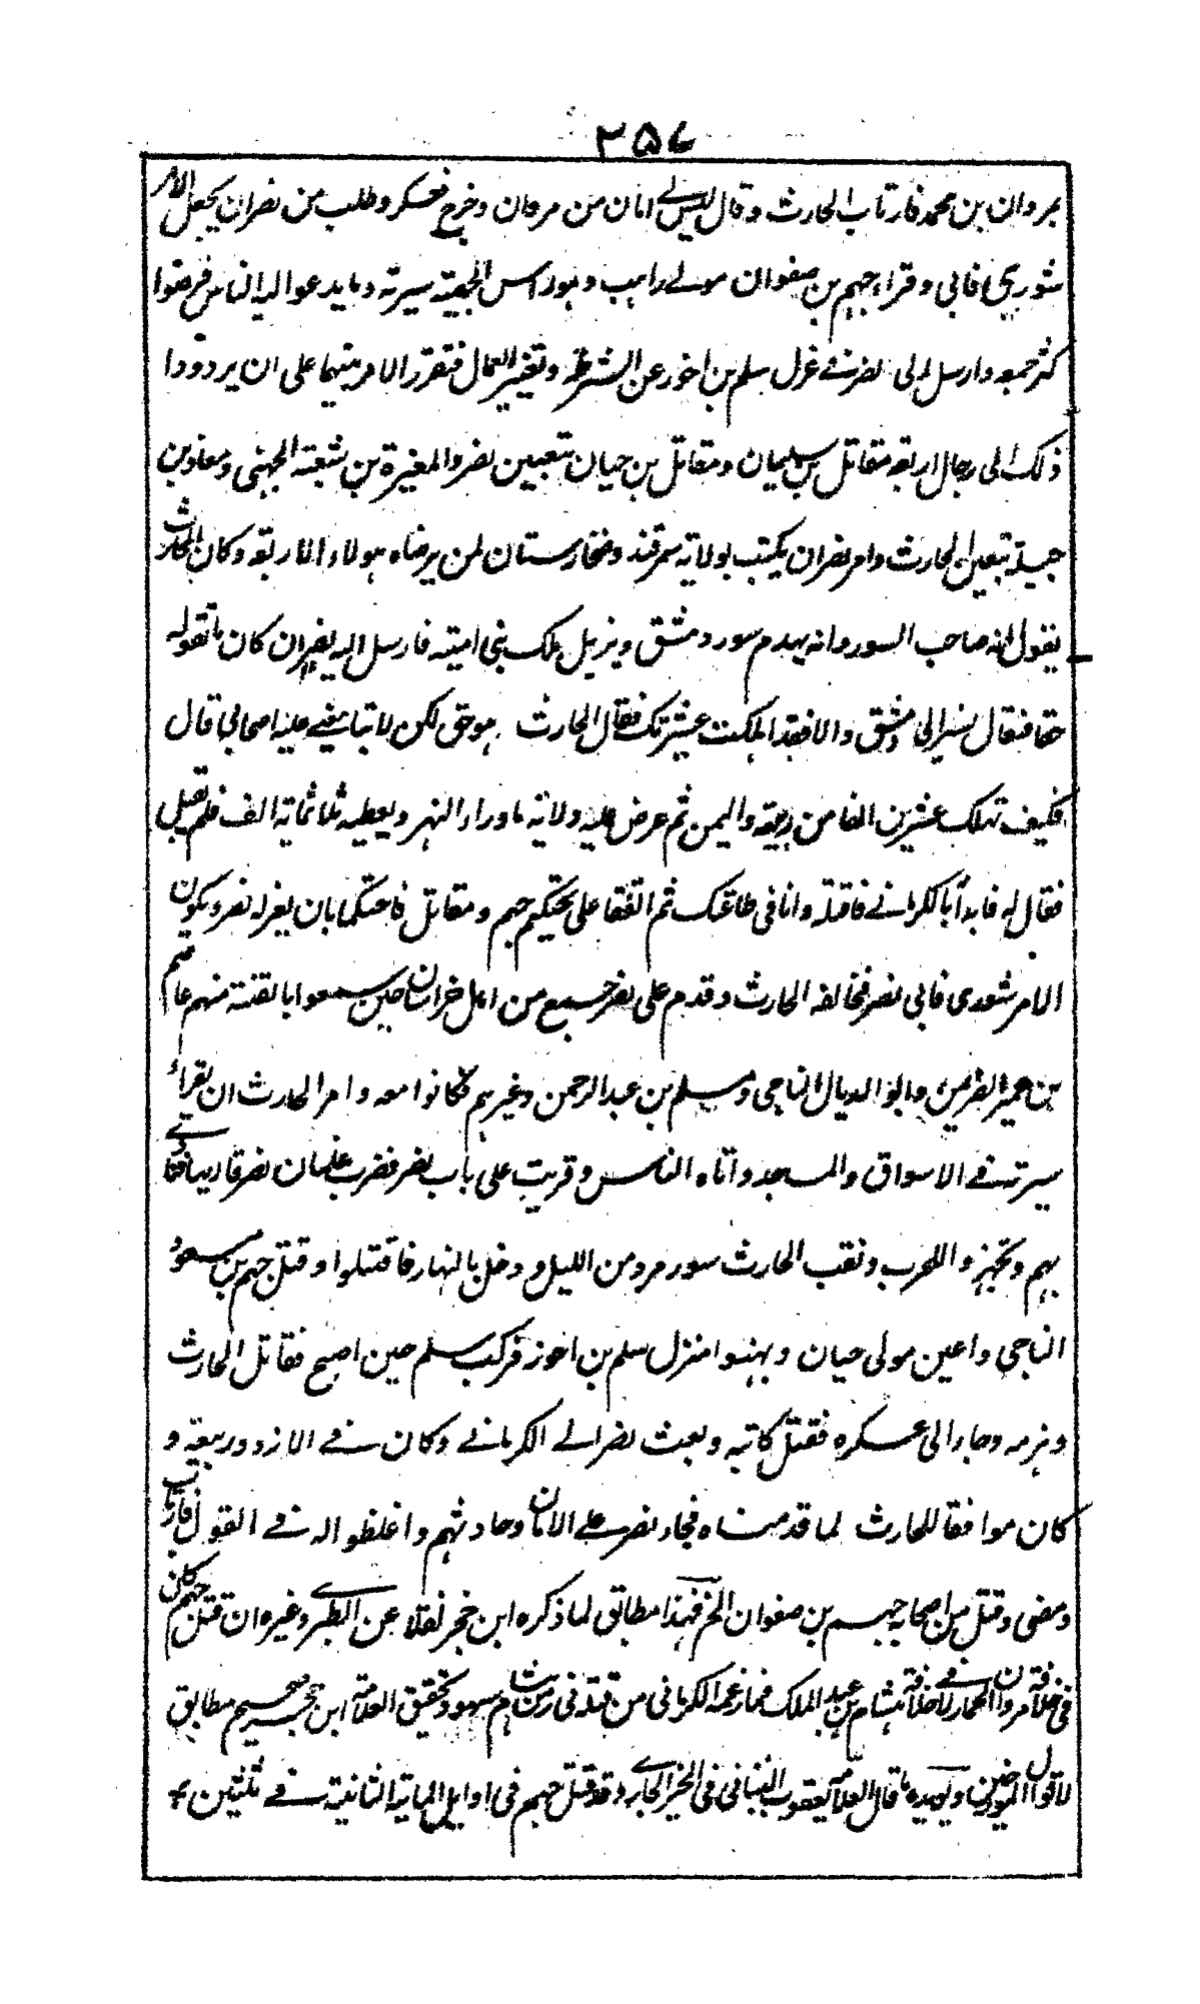 ٣٥٧
بمروان بن محمد فارتاب الحارث وقال ليس لے امان من مروان وخرج فعسكر وطلب من نصر ان يجعل الامر
شوري فابى وقراء جهم بن صفوان مولے راسب وهو راس الجهمية سيرته وما يدعو اليه الناس فرضوا
كثر جمعه وارسل الى نصر فے عزل سلم بن احوز عن الشرطة وتغيير العمال فتقرر الامر بينهما على ان يردودا
ذلك الى رجال اربعة مقاتل بن سليمان ومقاتل بن حيان بتعيين نصر والمغيرة بن شعبة الجهني ومعاذ بن
جبلة بتعين الحارث وامر نصر ان يكتب بولاية سمرقند وطخارستان لمن يرضاه هولاء الاربعة وكان الحارث
يقول انه صاحب السور وانه يهدم سور دمشق ويزيل ملك بني امية فارسل اليه نصر ان كان ما تقوله
حقا فتعال نسير الى دمشق والا فقد اهلكت عشيرتك فقال الحارث هو حق لكن لا تبايعنے عليه اصحابي قال
فكيف تهلك عشرين الفا من ربيعة واليمن ثم عرض عليه ولاية ماوراء النهر ويعطيه ثلاثمائة الف فلم يقبل
فقال له فابدأ بالكرمانے فاقتله وانا في طاعتك ثم اتفقا على تحكيم جهم ومقاتل فاحتكما بان يعزل نصر ويكون
الامر شورى فابى نصر فخالفه الحارث وقدم على نصر جمع من اهل خراسان حين سمعوا بالفتنة منهم عاصم
بن عمير الضريمي وابو الديال الناجي ومسلم بن عبد الرحمن وغيرهم فكانوا معه وامر الحارث ان يقراء
سيرته فے الاسواق والمسجد واتاه الناس وقريت على باب نصر فضرب غلمان نصر قاريها فنادے
بهم وتجهزوا للحرب ونقب الحارث سور مرو من الليل ودخل بالنهار فاقتتلوا وقتل جهم بن مسعود
الناجي واعين مولى حيان ونهبوا منزل سلم بن احوز فركب سلم حين اصبح فقاتل الحارث
وهزمه وجاء الى عسكره فقتل كاتبه وبعث نصر الے الكرمانے وكان فے الازد وربيعة و
كان موافقا للحارث لما قدمناه فجاء نصر علے الامان وحادثهم واغلظوا له فے القول فارتاب
ومضى وقتل من اصحابه جهم بن صفوان الخ فهذا مطابق لما ذكره ابن حجر نقلا عن الطبرے وغيره ان قتل جهم كان
في خلافة مروان الحمار لا خلافة هشام بن عبد الملك فما زعمه الكرماني من قتله في زمن هشام سهو وتحقيق العلامة ابن حجر صحيح مطابق
لاقوال المورخين ويويده ما قال العلامة يعقوب البناني في الخير الجارے وقد قتل جهم في اوايل المائة الثانية فے ثلثين +